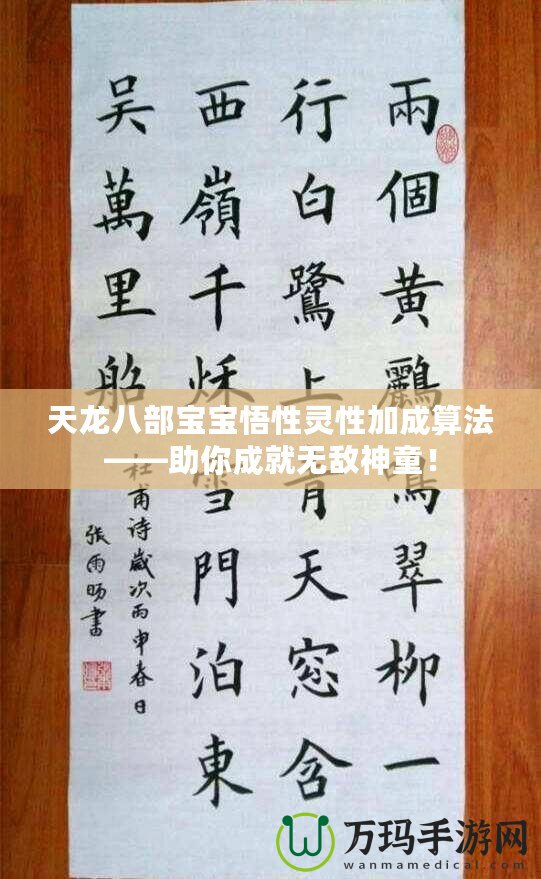 兩個黃鸝鳴翠柳一
行白鷺上青天窓含
西嶺千秋雪門泊東
吳萬里船
杜甫诗歲次丙申春日
張雨旸書
天龙八部宝宝悟性灵性加成算法
——助你成就无敌神童！
万玛手游网
wanmamedical.com